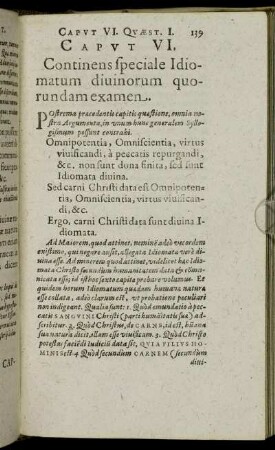 CAPVT VI. QVÆST. I. 139
CAPVT VI,
Continens speciale Idio-
matum diuinorum quo-
rundam examen.
POstrema præcedentis capitis quæstione, omnia no-
stra Argumenta, in vnum hunc generalem Syllo-
gismum possunt contrahi.
Omnipotentia, Omniscientia, virtus
viuificandi, à peccatis repurgandi,
&c. non sunt dona finita, sed sunt
Idiomata diuina.
Sed carni Christi data est Omnipoten-
tia, Omniscientia, virtus viuifican-
di, &c.
Ergo, carni Christi data sunt diuina I-
diomata.
Ad Maiorem, quod attinet, neminē adeò vecordem
existimo, qui negare ausit, allegata Idiomata verè di-
uina esse. Ad minorem quod attinet, videlicet hæc Idio-
mata Christo secundum humanitatem data & cōmu-
nicata esse; id isthoc sexto capite probare volumus. Et
quidem horum Idiomatum quædam humanæ naturæ
esse collata, adeò clarum est, vt probatione peculiari
non indigeant. Qualia sunt: 1. Quod emundatio à pec-
catis SANGVINI Christi (parti humanitatis suæ) ad-
scribitur. 2. Quòd Christus, de CARNE, id est, huma-
na sua natura dicit, illam esse viuificam. 3. Quòd Christo
potestas faciēdi iudicij data sit, QVIA FILIVS HO-
MINIS est. 4. Quòd secundùm CARNEM (secundùm
diui-